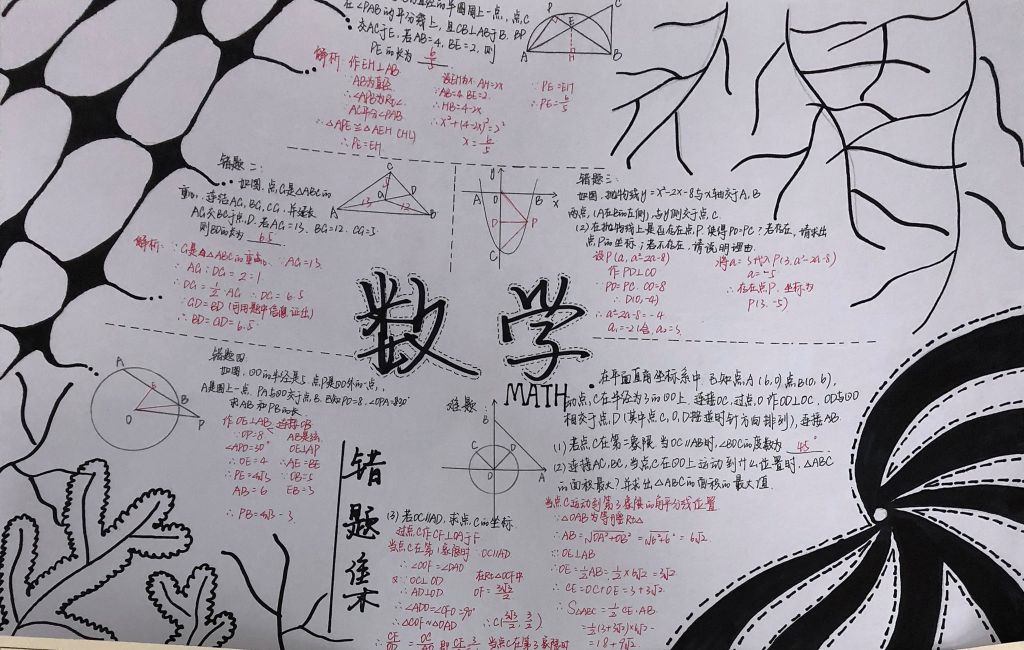 在∠PAB的平分线上,且CB⊥AB于B. BP
交AC于E,若AB=4, BE=2, 则
PE的长为 6/5
P
E
C
A
H
B
解析: 作EH⊥AB
∵AB为直径
∴∠APB为Rt∠
AC平分∠PAB
∴△APE≌△AEH (HL)
∴PE=EH
设EH为x AH=2x
∵AB=4 BE=2
∴HB=4-2x
∴x²+(4-2x)²=2²
x=6/5
∵PE=EH
∴PE=6/5
错题二:
如图,点G是△ABC的
重心,连结AG,BG,CG,并延长
AG交BC于点D.若AG=13, BG=12, CG=5
则BD的长为 6.5
C
D
G
5
13
12
A
B
解析: ∵G是△ABC的重心 ∵AG=13
∴AG:DG=2:1
∴DG=1/2AG ∴DG=6.5
∵GD=BD (可用题中信息证出)
∴BD=GD=6.5
A
O
B
x
D
P
C
错题三:
如图,抛物线y=x²-2x-8与x轴交于A,B
两点,(A在B的左侧),与y轴交于点C.
(2)在抛物线上是否存在点P,使得PO=PC?若存在,请求出
点P的坐标;若不存在,请说明理由.
设P(a, a²-2a-8)
作PD⊥CO
∵PO=PC. OC=8
∴D(0,-4)
∴a²-2a-8=-4
将a=3代入P(3, a²-2a-8)
a=-5
∴存在点P,坐标为
P(3,-5)
数 学
MATH
错题四
如图,⊙O的半径是5,点P是⊙O外的一点,
A是圆上一点,PA与⊙O交于点B.已知PO=8,∠OPA=30°
求AB和PB的长.
A
E
B
O
P
作OE⊥AB 连接OB
∵OP=8
∠APO=30°
∴OE=4
∴PE=4√3
AB=6
AB是弦
OE⊥AP
∴AE=BE
∵OB=5
EB=3
∴PB=4√3-3
错题集
难题:
B
C
D
O
A
在平面直角坐标系中,已知点A(6,0),点B(0,6),
动点C在半径为3的⊙O上,连接OC,过点O作OD⊥OC, OD与⊙O
相交于点D(其中点C,O,D按逆时针方向排列),连接AB.
(1)若点C在第二象限,当OC∥AB时,∠BOC的度数为 45°
(2)连接AC,BC,当点C在⊙O上运动到什么位置时,△ABC
的面积最大?并求出△ABC的面积的最大值.
当点C运动到第3象限的角平分线位置
∵△OAB为等腰Rt△
∴AB=√OA²+OB²=√6²+6²=6√2
∵OE⊥AB
∴OE=1/2AB=1/2×6√2=3√2
∴CE=OC+OE=3+3√2
∴S△ABC=1/2 CE·AB
=1/2(3+3√2)×6√2
=18+9√2
(3)若OC∥AD,求点C的坐标
过点C作CF⊥OA于F
当点C在第1象限时 ∵OC∥AD
∴∠COF=∠DAO
又∵OC⊥OD
∴AD⊥OD
∴∠ADO=∠CFO=90°
∴△COF∽△OAD
在Rt△OCF中
OF=3√3/2
∴C(3√3/2, 3/2)
当点C在第3象限时